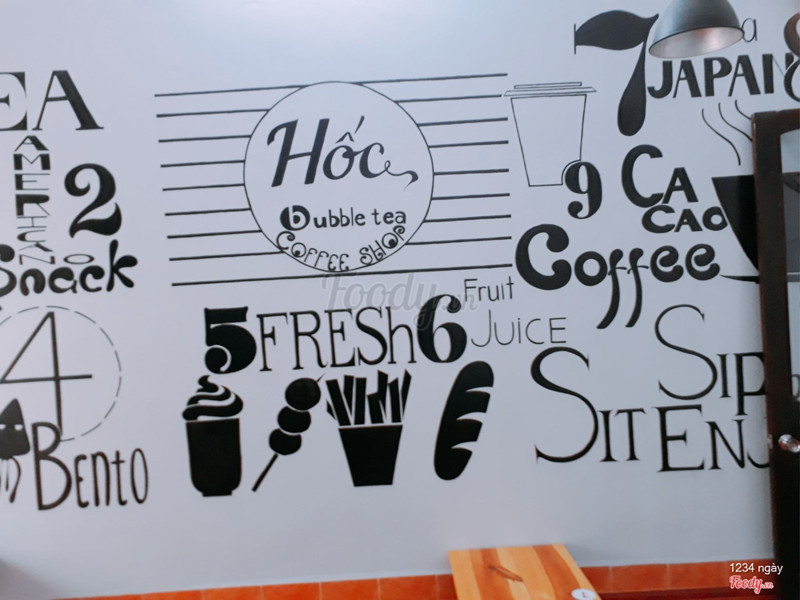 EA
AMERICANO
2
Snack
4
Bento
Hốc
bubble tea
COFFEE SHOP
5 FRESh 6 Fruit
JUICE
7
JAPAN
8
9 CA
CAO
Coffee
SIP
SIT ENJ
Foody.vn
1234 ngày
Foody.vn